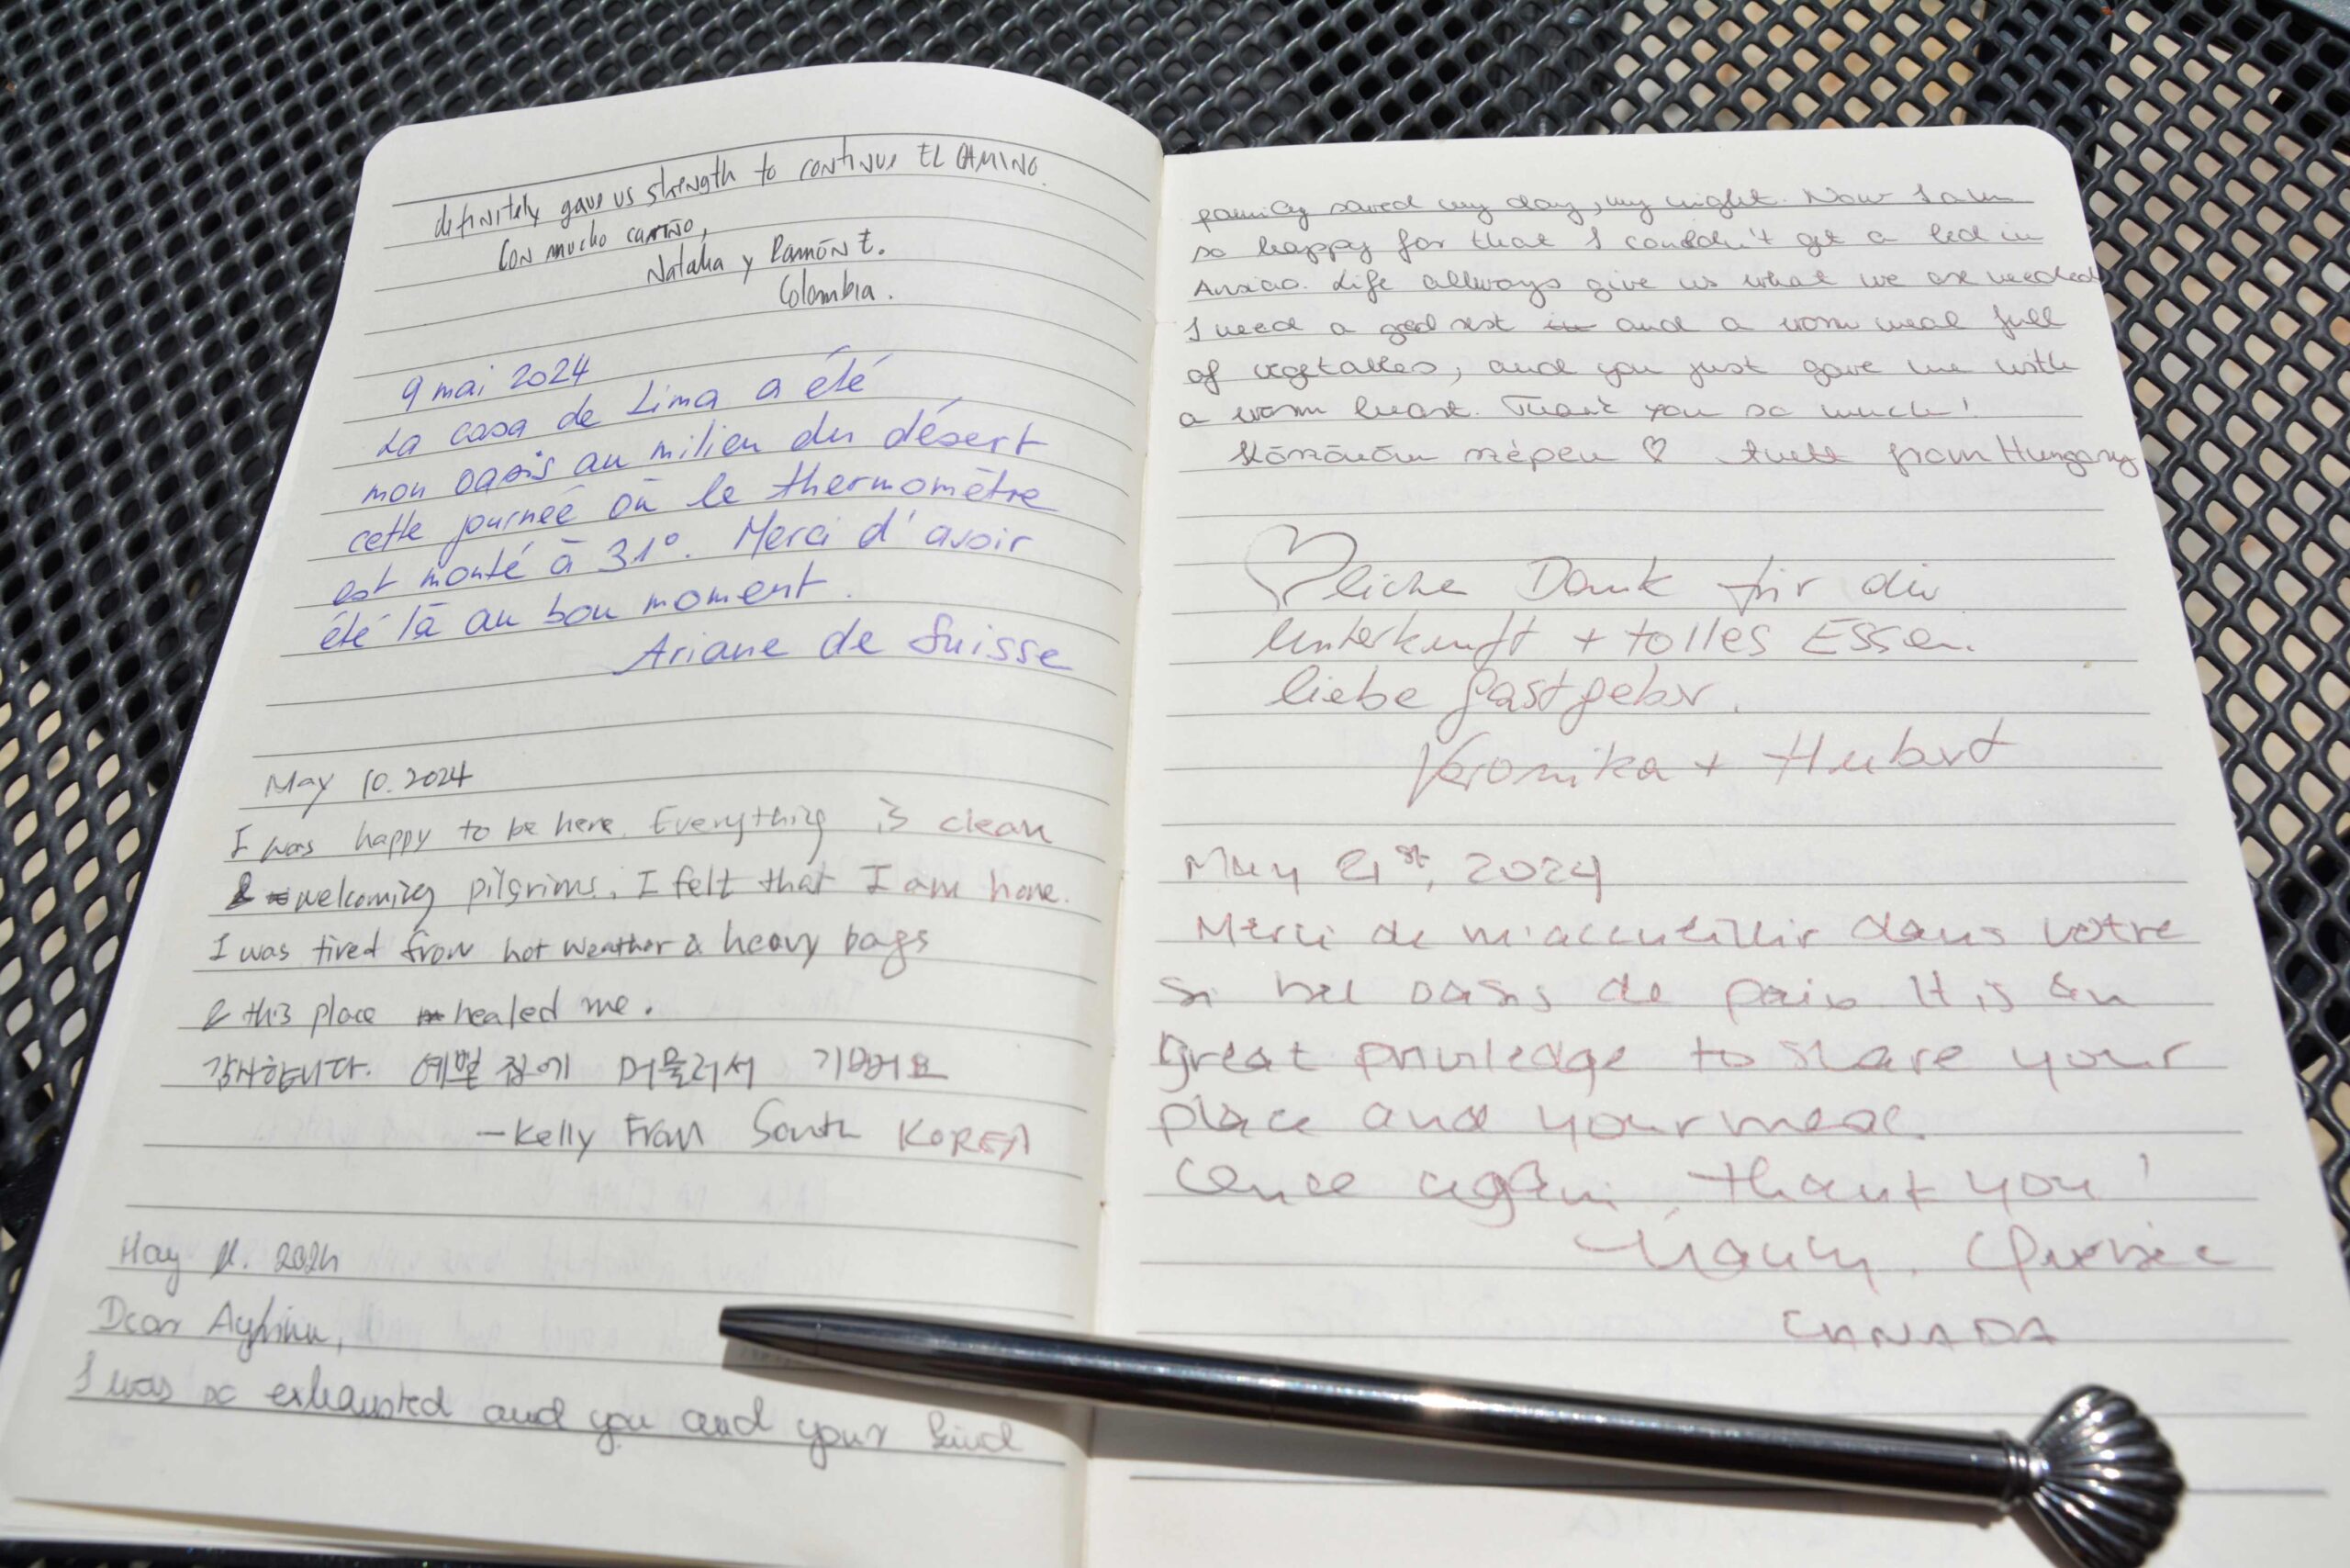 definitely gave us strength to continue EL CAMINO.
Con mucho cariño,
Natalia y Ramón E.
Colombia.
9 mai 2024
La casa de Lima a été
mon oasis au milieu du désert
cette journée où le thermomètre
est monté à 31°. Merci d'avoir
été là au bon moment.
Ariane de Suisse
May 10. 2024
I was happy to be here. Everything is clean
& welcoming pilgrims. I felt that I am home.
I was tired from hot weather & heavy bags
& this place healed me.
감사합니다. 예쁜 집에 머물러서 기뻤어요
- Kelly From South KOREA
May 11. 2024
Dear
I was so exhausted and you and your kind
family saved my day, my night. Now I am
so happy for that I couldn't get a bed in
Life allways give us what we are needed
I need a good rest and a warm meal full
of vegetables, and you just gave me with
a warm heart. Thank you so much!
Köszönöm szépen ♡ from Hungary
♡liche Dank für die
Unterkunft + tolles Essen.
liebe Gastgeber.
Veronika + Hubert
May 21st, 2024
Merci de m'accueillir dans votre
si bel oasis de paix. It is an
great priviledge to share your
place and your meal.
Once again, thank you!
Québec
CANADA